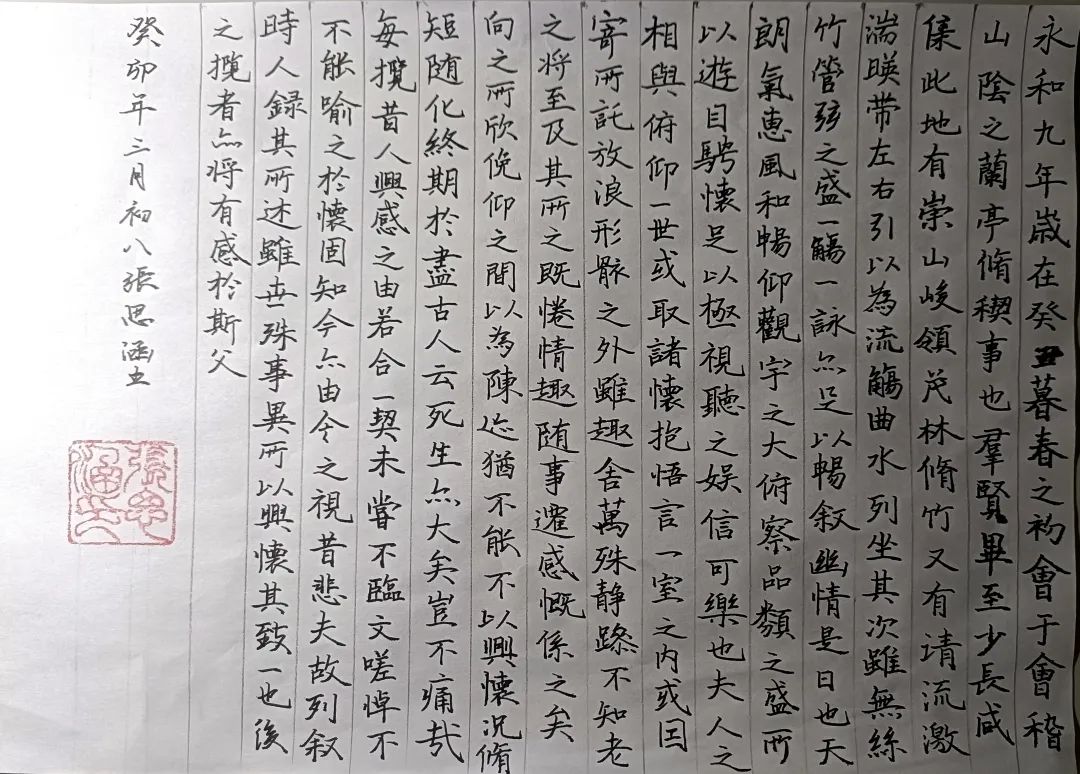 永和九年歲在癸丑暮春之初會于會稽
山陰之蘭亭脩稧事也羣賢畢至少長咸
集此地有崇山峻領茂林脩竹又有清流激
湍暎带左右引以為流觴曲水列坐其次雖無絲
竹管弦之盛一觴一詠亦足以暢叙幽情是日也天
朗氣惠風和暢仰觀宇之大俯察品類之盛所
以遊目騁懷足以極視聽之娛信可樂也夫人之
相與俯仰一世或取諸懷抱悟言一室之内或因
寄所託放浪形骸之外雖趣舍萬殊静躁不知老
之将至及其所之既惓情趣随事遷感慨係之矣
向之所欣俛仰之間以為陳迹猶不能不以興懷況脩
短随化終期於盡古人云死生亦大矣豈不痛哉
每攬昔人興感之由若合一契未嘗不臨文嗟悼不
不能喻之於懷固知今亦由今之視昔悲夫故列叙
時人録其所述雖世殊事異所以興懷其致一也後
之攬者亦将有感於斯父
癸卯年三月初八張思涵书